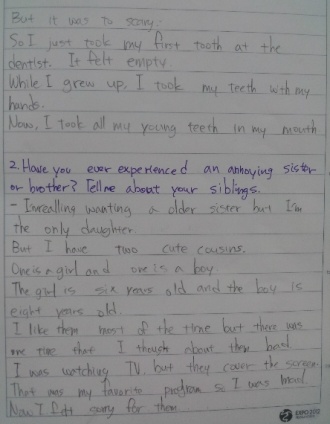 But it was so scary.
So I just took my first tooth at the
dentist. It felt empty.
While I grew up, I took my teeth with my
hands.
Now, I took all my young teeth in my mouth
2. Have you ever experienced an annoying sister
or brother? Tell me about your siblings.
- I'm realling wanting a older sister but I'm
the only daughter.
But I have two cute cousins.
One is a girl and one is a boy.
The girl is six years old and the boy is
eight years old.
I like them most of the time but there was
one time that I though about them bad.
I was watching TV, but they cover the screen.
That was my favorite program so I was mad.
Now I felt sorry for them